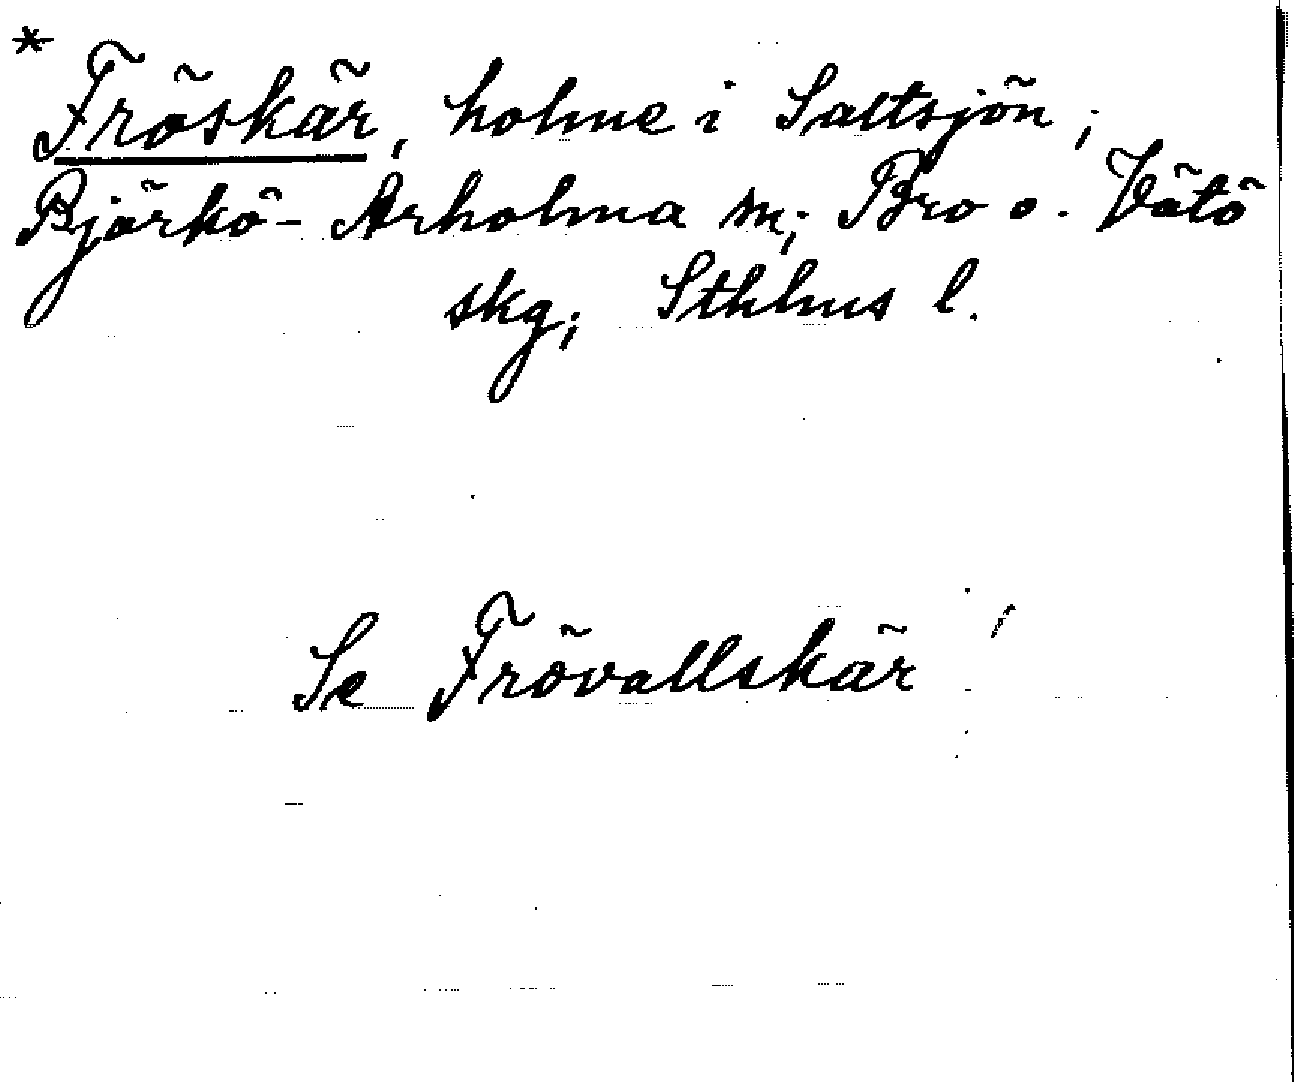 * Fröskär, holme i Saltsjön;
Björkö-Arholma sn; Bro o. Vätö
skg; Sthlms l.
Se Frövallskär